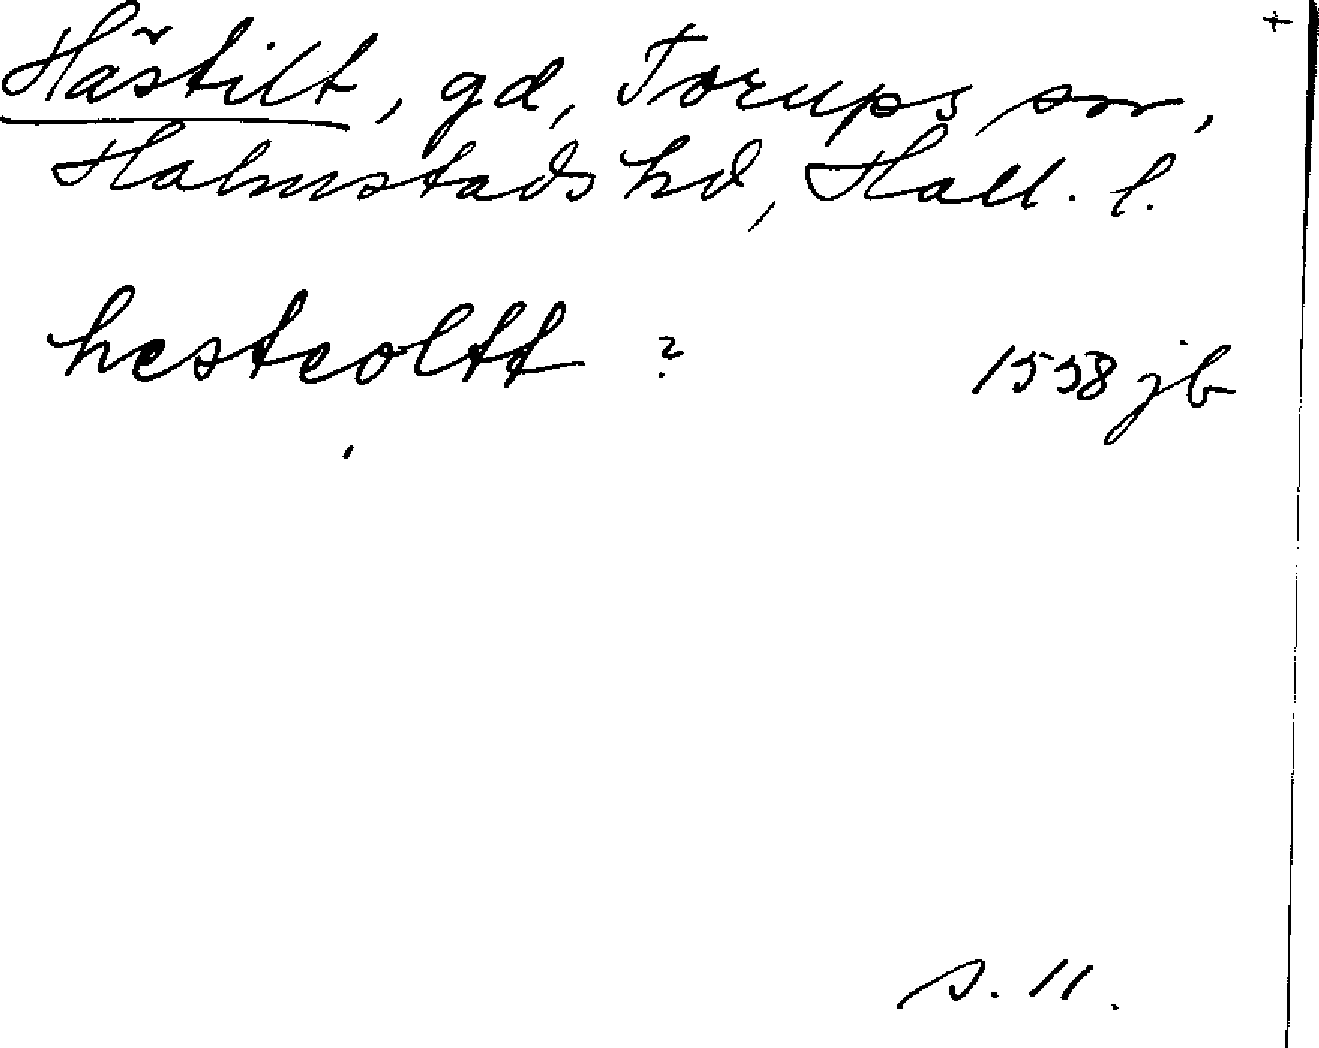 +
Hästilt, gd, Torups sn,
Halmstads hd, Hall. l.
hesteoltt ? 1558 jb
s. 11.